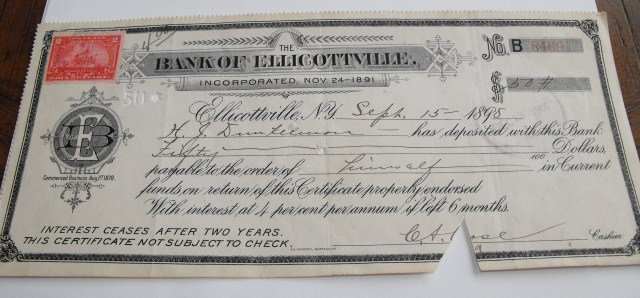 THE
BANK OF ELLICOTTVILLE,
INCORPORATED, NOV. 24-1891
No. B 8469
50
Ellicottville, N.Y. Sept. 15 1898
has deposited with this Bank
Fifty Dollars,
payable to the order of himself 100 in Current
funds on return of this Certificate properly endorsed
With interest at 4 per cent per annum if left 6 months.
Commenced Business Aug. 1st 1878.
INTEREST CEASES AFTER TWO YEARS.
THIS CERTIFICATE NOT SUBJECT TO CHECK.
C.A. Case Cashier